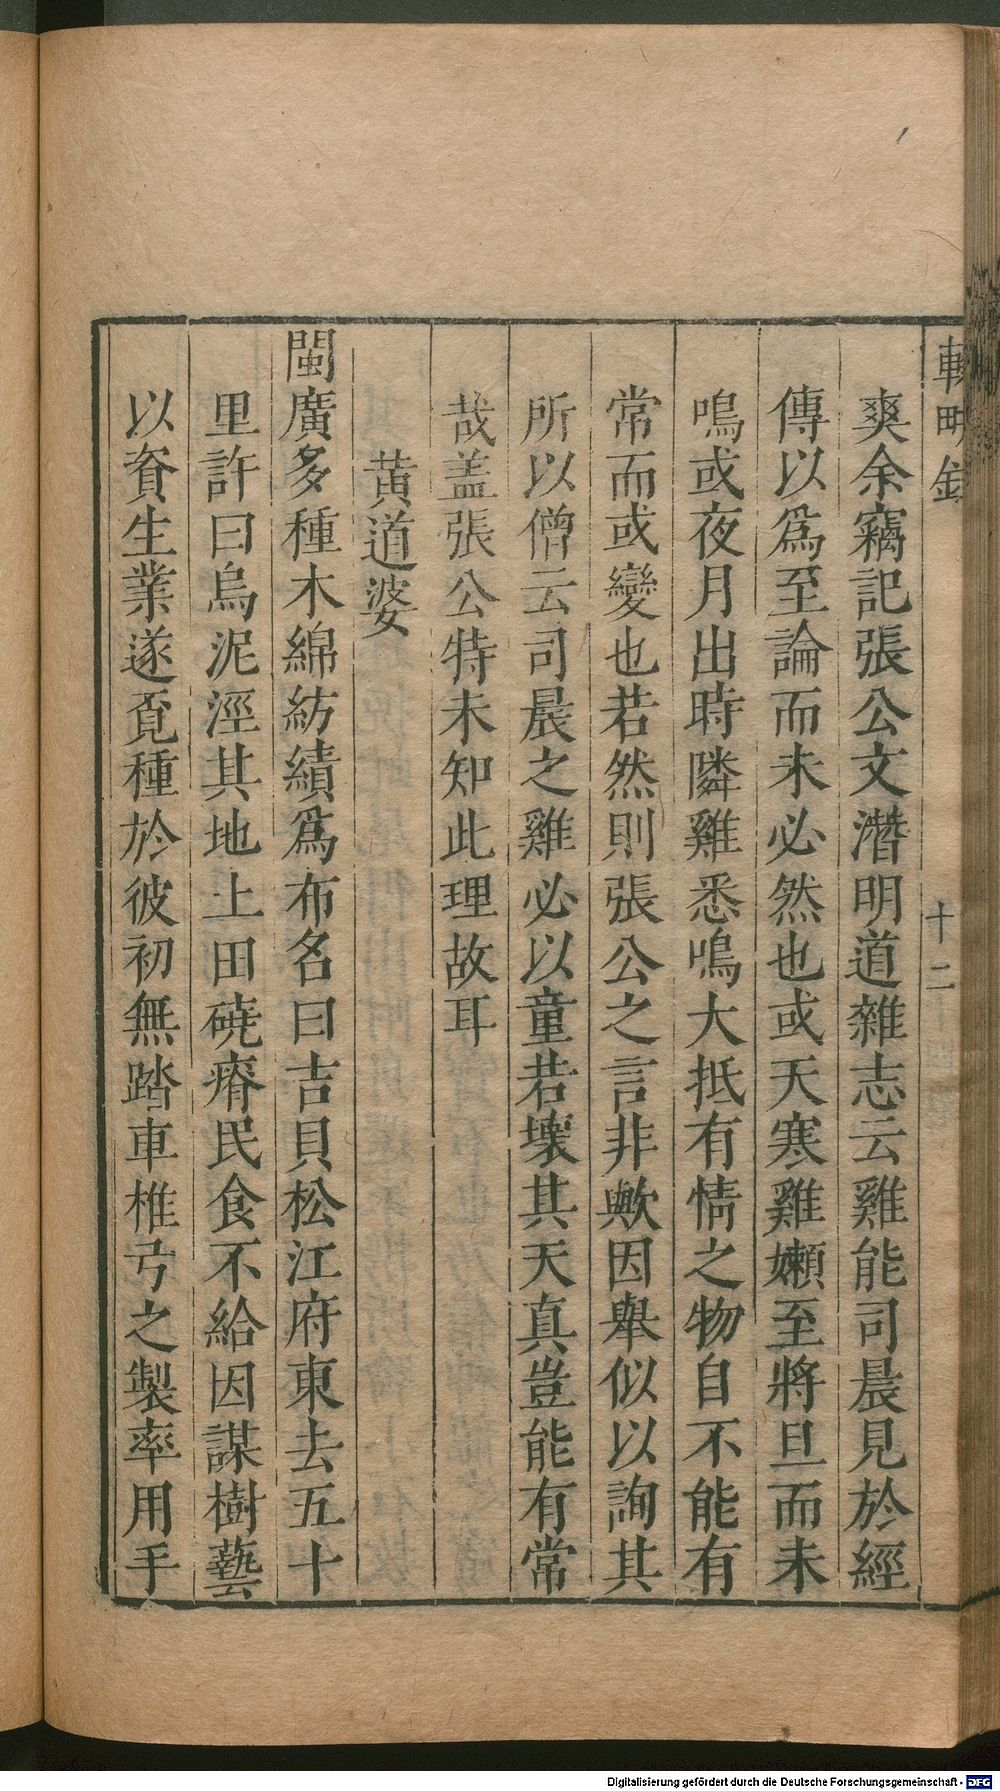 輟畊錄
十二
爽余竊記張公文潛明道雜志云雞能司晨見於經
傳以爲至論而未必然也或天寒雞嬾至將旦而未
鳴或夜月出時隣雞悉鳴大抵有情之物自不能有
常而或變也若然則張公之言非歟因舉似以詢其
所以僧云司晨之雞必以童若壞其天真豈能有常
哉盖張公特未知此理故耳
黄道婆
閩廣多種木綿紡績爲布名曰吉貝松江府東去五十
里許曰烏泥涇其地土田磽瘠民食不給因謀樹藝
以資生業遂覔種於彼初無踏車椎弓之製率用手
Digitalisierung gefördert durch die Deutsche Forschungsgemeinschaft - DFG